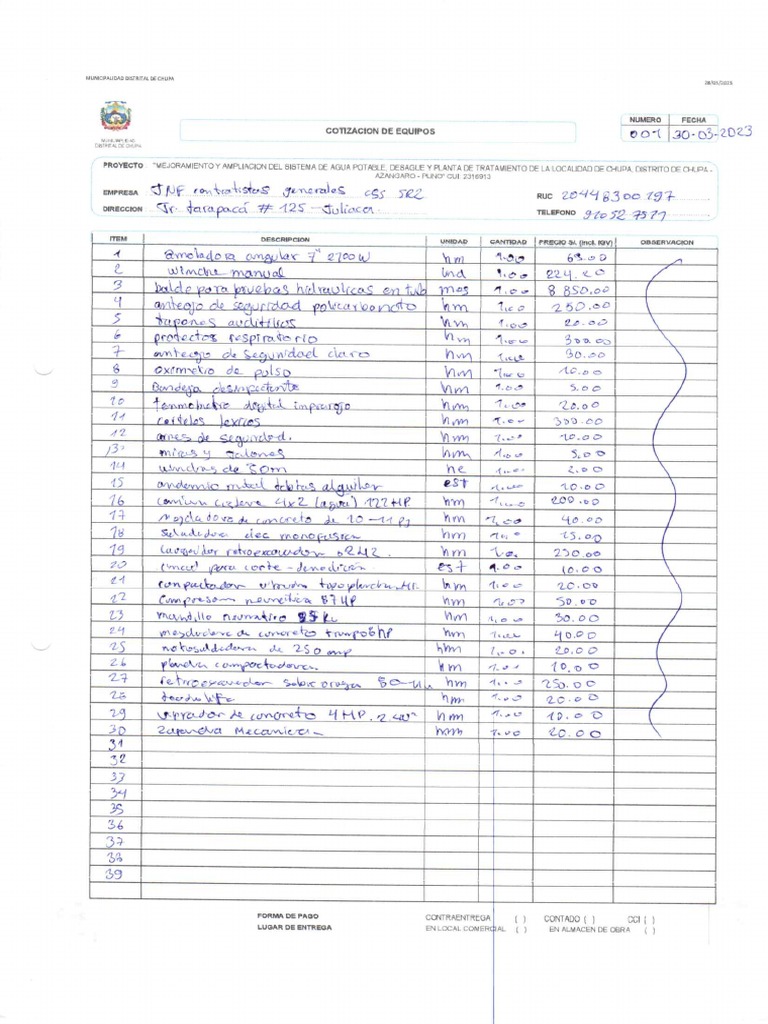 MUNICIPALIDAD DISTRITAL DE CHUPA
MUNICIPALIDAD
DISTRITAL DE CHUPA
COTIZACION DE EQUIPOS
NUMERO FECHA
001 30-03-2023
PROYECTO : "MEJORAMIENTO Y AMPLIACION DEL SISTEMA DE AGUA POTABLE, DESAGUE Y PLANTA DE TRATAMIENTO DE LA LOCALIDAD DE CHUPA, DISTRITO DE CHUPA -
AZANGARO - PUNO" CUI 2316913
EMPRESA JNF contratistas generales
RUC 20448300197
DIRECCION Jr. tarapacá # 125 - Juliaca
TELEFONO
ITEM DESCRIPCION UNIDAD CANTIDAD PRECIO S/. (Incl. IGV) OBSERVACION
1 amoladora angular 7" 2700W hm 1.00 63.00
2 winche manual und 1.00
3 balde para pruebas hidraulicas en tub mes 1.00 8 850.00
4 anteojo de seguridad policarbonato hm 1.00 250.00
5 tapones auditilios hm 1.00 20.00
6 protectos respiratorio hm 1.00 300.00
7 anteojo de seguridad claro hm 1.00 30.00
8 oximetro de pulso hm 1.00 10.00
9 Bandeja desinfectante hm 1.00 5.00
10 digital hm 1.00 20.00
11 hm 1.00 300.00
12 arnes de seguridad. hm 1.00 10.00
13 miras y jalones hm 1.00 5.00
14 winchas de 50m he 1.00 2.00
15 est 1.00 10.00
16 4x2 (agua) 122 HP hm 1.00 200.00
17 de concreto de 10-11 p3 hm 1.00 40.00
18 hm 1.00 15.00
19 hm 250.00
20 para corte est 1.00 10.00
21 compactador hm 1.00 20.00
22 87 HP hm 1.00 50.00
23 neumatico hm 1.00 30.00
24 de concreto hm 1.00 40.00
25 motosoldadora de 250 amp hm 1.00 20.00
26 plancha compactadora. hm 1.00 10.00
27 retroexcavador sobre oruga hm 1.00 250.00
28 hm 1.00 20.00
29 vibrador de concreto 4 HP. 2.40" hm 1.00 10.00
30 Mecanica hm 1.00 20.00
31
32
33
34
35
36
37
38
39
FORMA DE PAGO CONTRAENTREGA ( ) CONTADO ( ) CCI ( )
LUGAR DE ENTREGA EN LOCAL COMERCIAL ( ) EN ALMACEN DE OBRA ( )